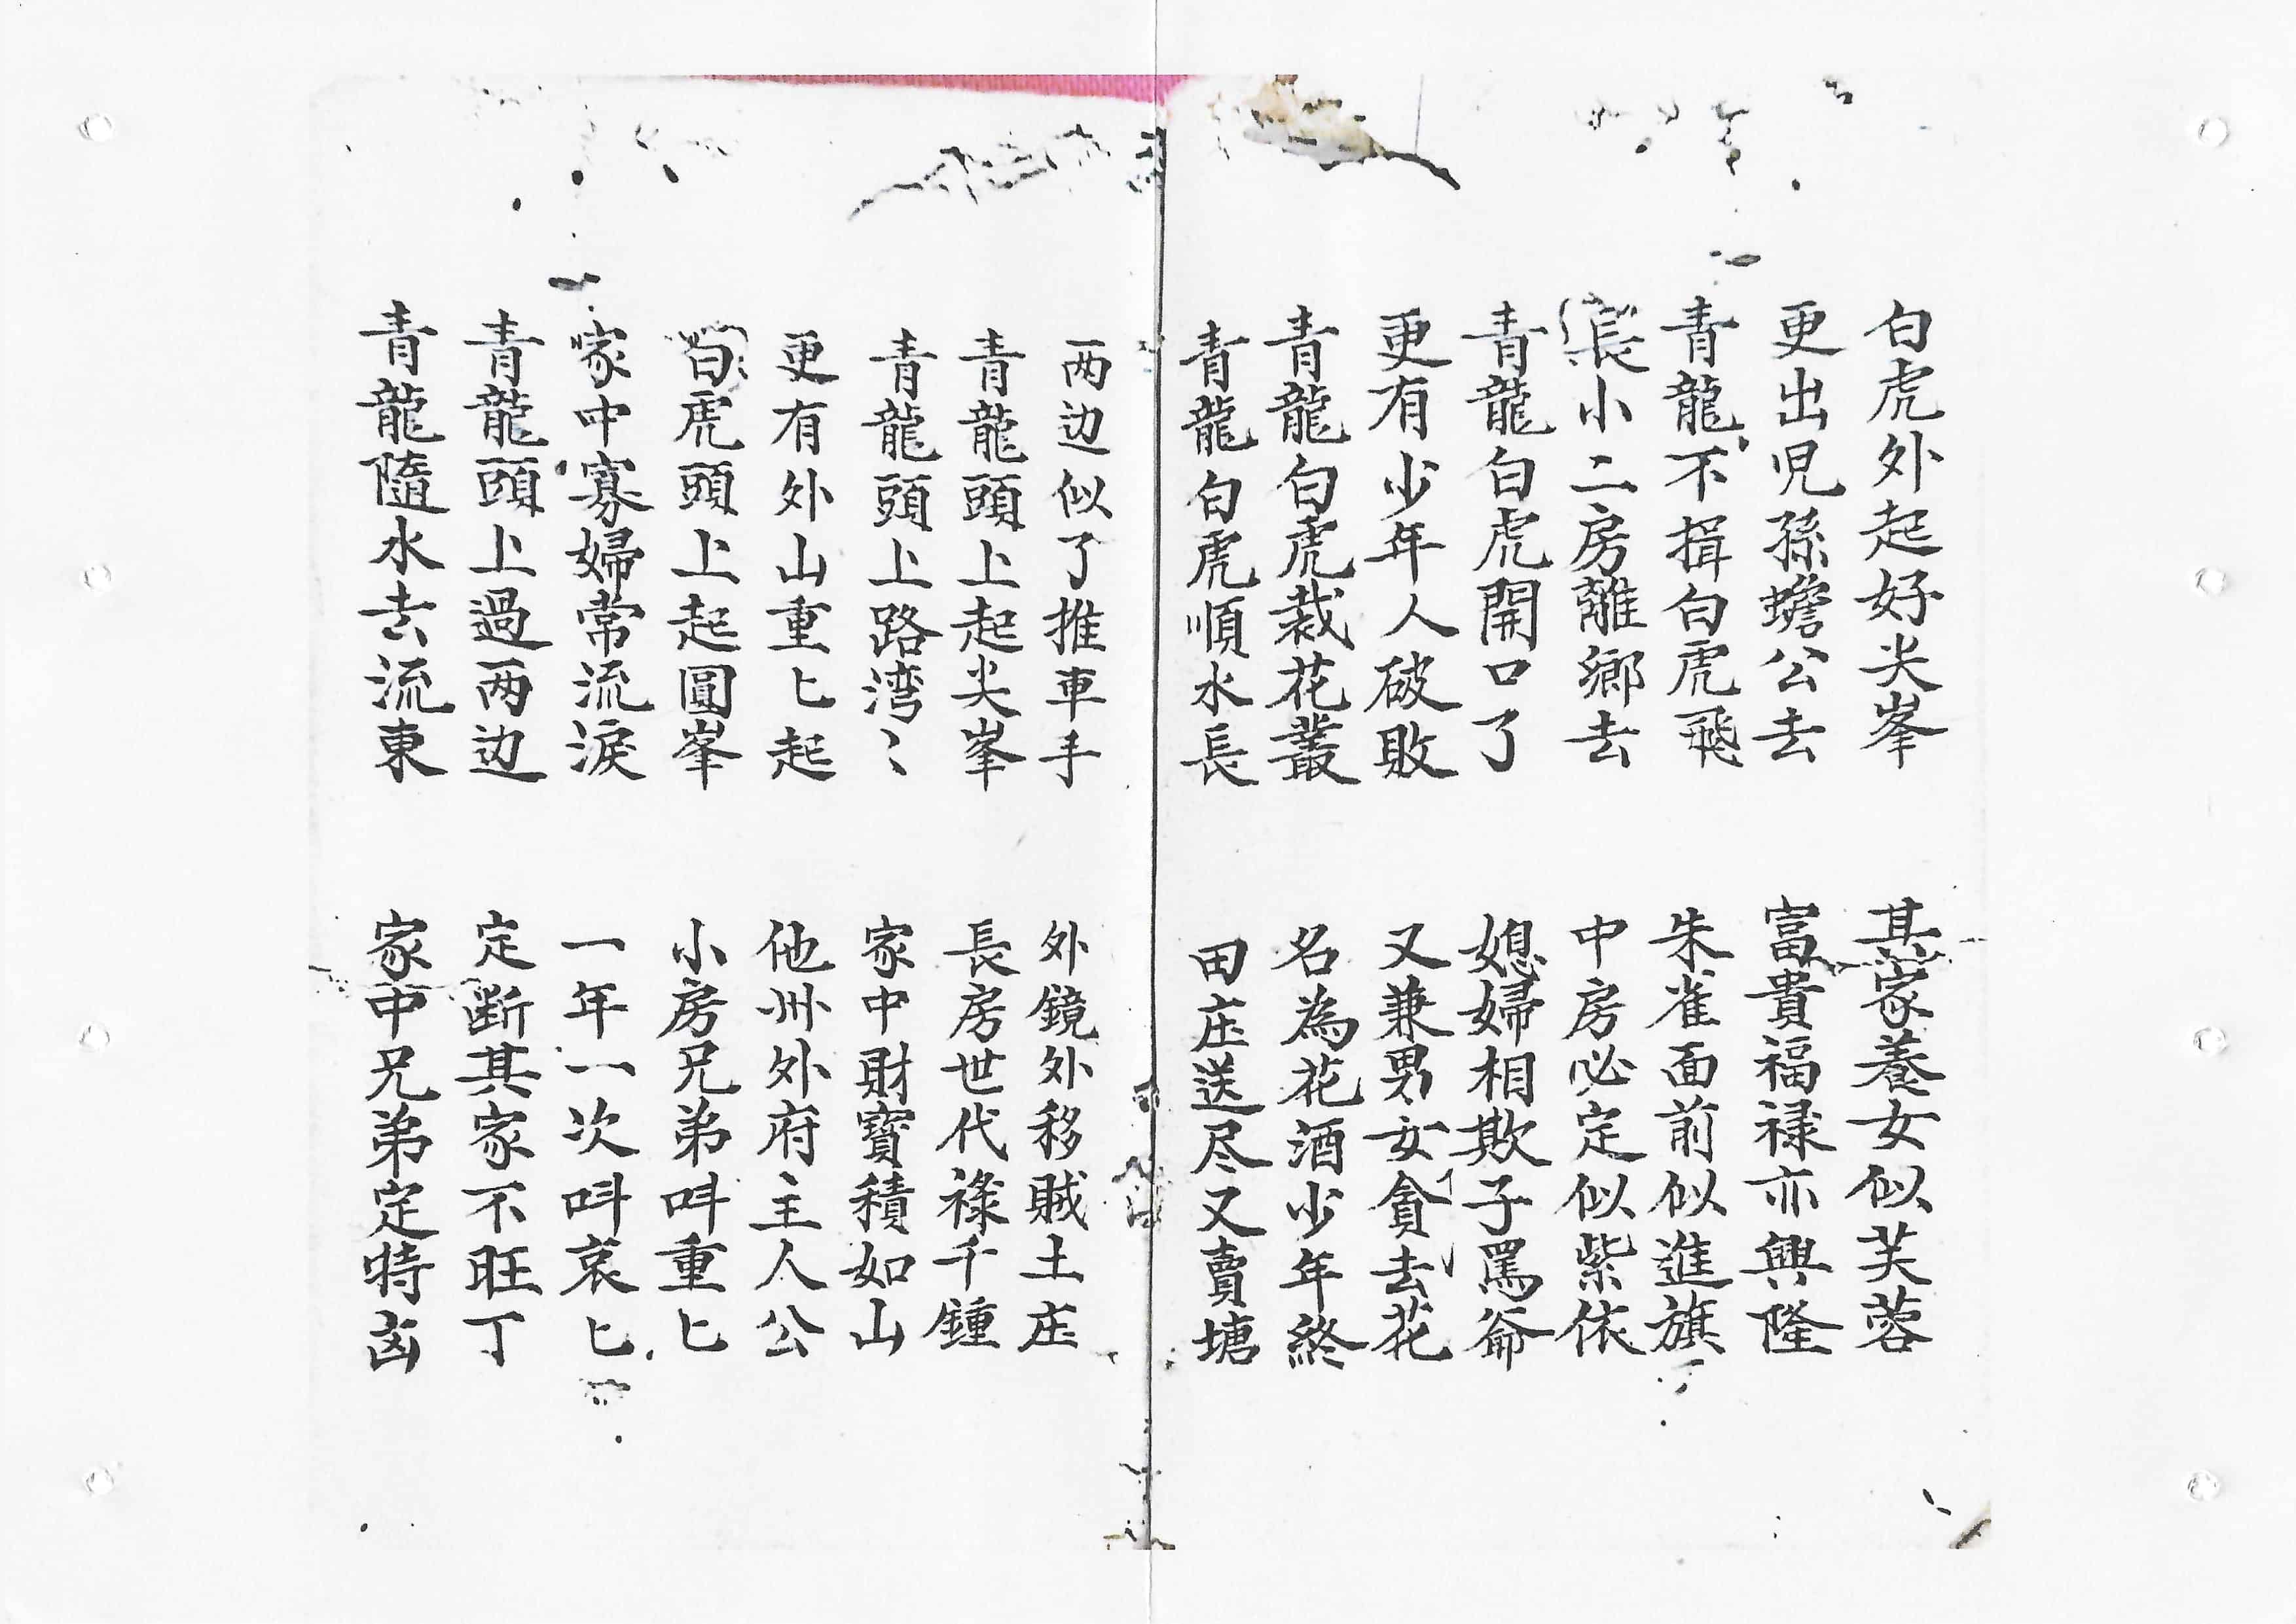 白虎外起好尖峯　其家養女似芙蓉
更出児孫蟾公去　富貴福禄亦興隆
青龍不揖白虎飛　朱雀面前似進旗
長小二房離鄉去　中房必定似紫依
青龍白虎開口了　媳婦相欺子罵爺
更有少年人破敗　又兼男女貪去花
青龍白虎裁花叢　名為花酒少年終
青龍白虎順水長　田庄送尽又賣塘
两边似了推車手　外鏡外移賊土庄
青龍頭上起尖峯　長房世代祿千鍾
青龍頭上路湾〻　家中財寳積如山
更有外山重匕起　他州外府主人公
白虎頭上起圓峯　小房兄弟呌重匕
家中寡婦常流淚　一年一次呌哀匕
青龍頭上過两边　定断其家不旺丁
青龍隨水去流東　家中兄弟定特凶